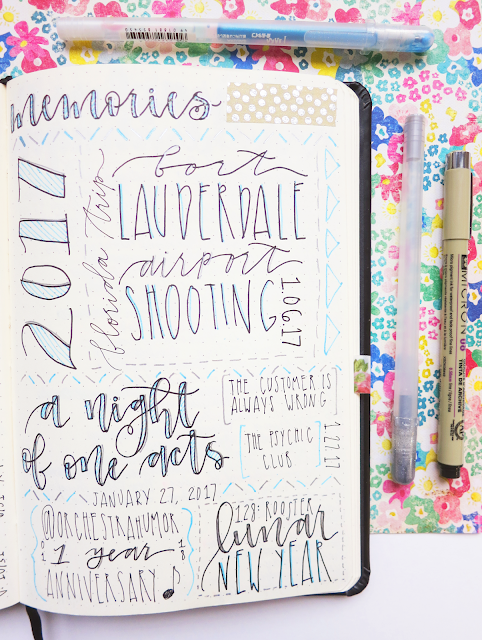 memories
2017
florida trip
fort
LAUDERDALE
airport
SHOOTING
1.06.17
a night
of one acts
THE CUSTOMER IS
ALWAYS WRONG
THE PSYCHIC
CLUB
1.22.17
JANUARY 27, 2017
@ORCHESTRAHUMOR
1 year
ANNIVERSARY
1 28: ROOSTER
lunar
NEW YEAR
MICRON